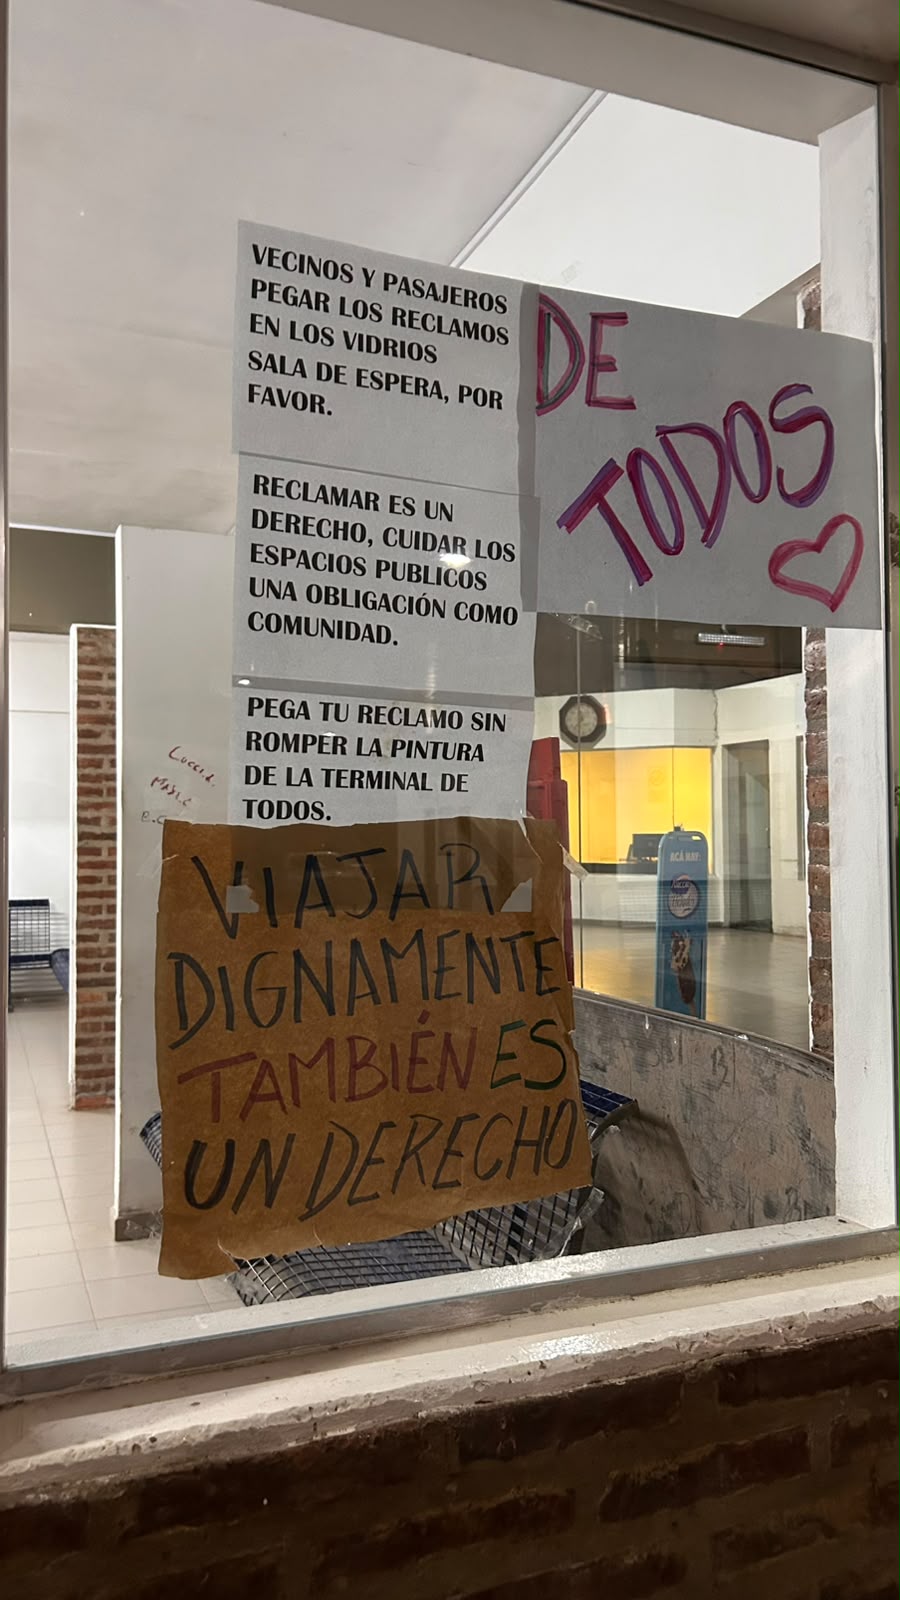 VECINOS Y PASAJEROS
PEGAR LOS RECLAMOS
EN LOS VIDRIOS
SALA DE ESPERA, POR
FAVOR.
RECLAMAR ES UN
DERECHO, CUIDAR LOS
ESPACIOS PUBLICOS
UNA OBLIGACIÓN COMO
COMUNIDAD.
PEGA TU RECLAMO SIN
ROMPER LA PINTURA
DE LA TERMINAL DE
TODOS.
DE
TODOS
VIAJAR
DIGNAMENTE
TAMBIÉN ES
UN DERECHO
ACÁ HAY: